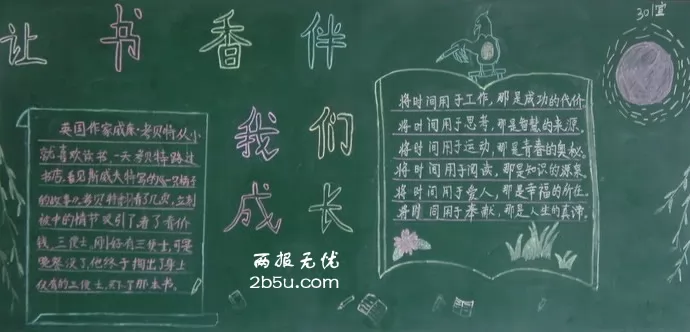 让书香伴
我们
成长
301宣
英国作家威廉·考贝特从小
就喜欢读书,一天考贝特路过
书店,看见斯威夫特写的《一只桶子
的故事》,考贝特翻看了几页,立刻
被中的情节吸引了,看了看价
钱,三便士,刚好有三便士,可是
晚餐没了,他终于掏出了身上
仅有的三便士,买下了那本书.
将时间用于工作,那是成功的代价
将时间用于思考,那是智慧的来源.
将时间用于运动,那是青春的奥秘.
将时间用于阅读,那是知识的源泉.
将时间用于爱人,那是幸福的所在.
将时间用于奉献,那是人生的真谛.
两报无优
2b5u.com